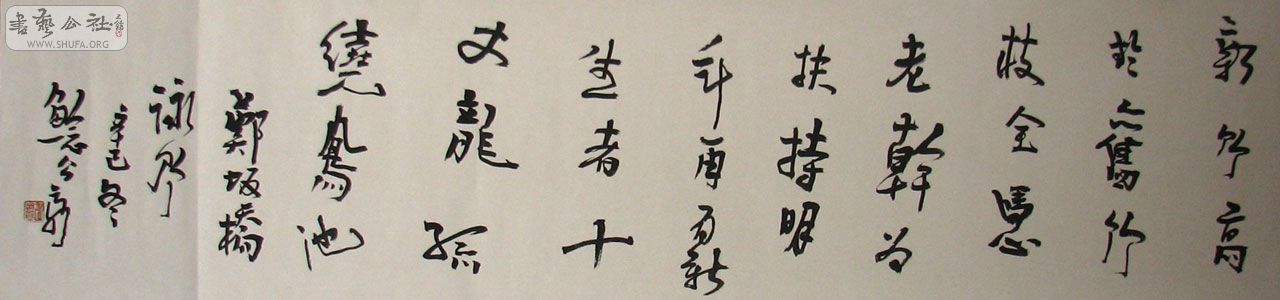 新竹高
於舊竹
枝全憑
老幹為
扶持明
年再有新
生者十
丈龍孫
繞鳳池
鄭坂橋
詠竹
辛巳冬
書藝公社
WWW.SHUFA.ORG